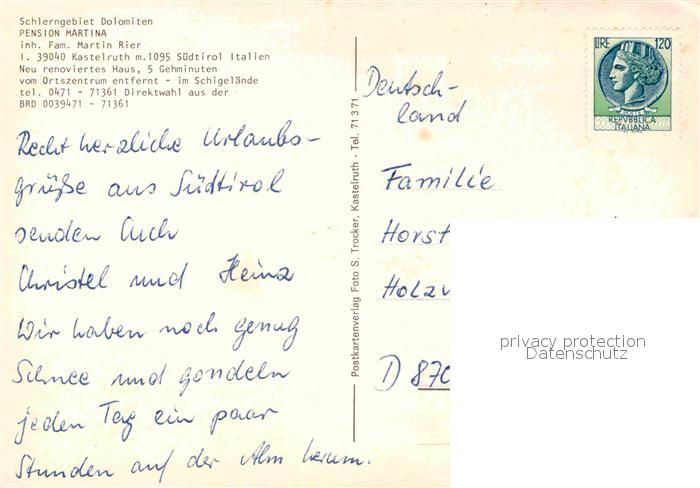 Schlerngebiet Dolomiten
PENSION MARTINA
inh. Fam. Martin Rier
I. 39040 Kastelruth m.1095 Südtirol Italien
Neu renoviertes Haus, 5 Gehminuten
vom Ortszentrum entfernt - im Schigelände
tel. 0471 - 71361 Direktwahl aus der
BRD 0039471 - 71361
Recht herzliche Urlaubs-
grüße aus Südtirol
senden Euch
Christel und Heinz
Wir haben noch genug
Schnee und gondeln
jeden Tag ein paar
Stunden auf der Alm herum.
Postkartenverlag Foto S. Trocker, Kastelruth - Tel. 71371
LIRE 120
REPVBBLICA
ITALIANA
Deutsch-
land
Familie
Horst
D 870
privacy protection
Datenschutz